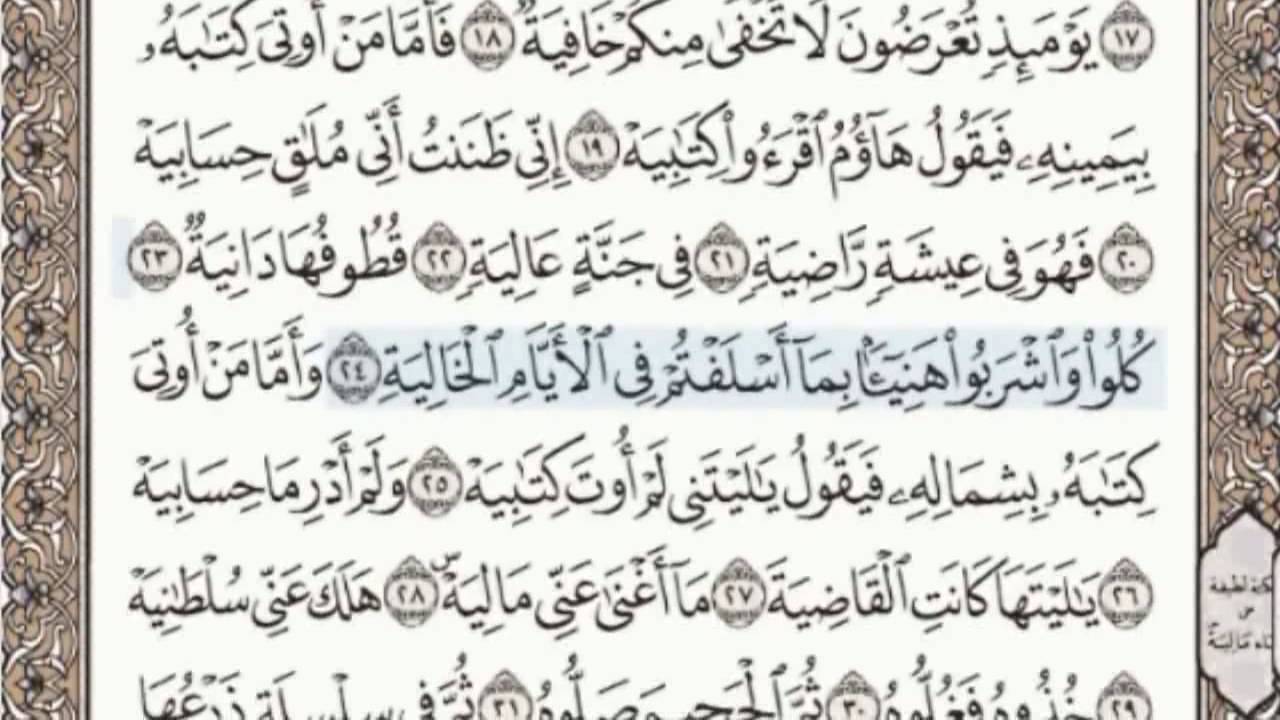 ١٧ يَوْمَئِذٍ تُعْرَضُونَ لَا تَخْفَىٰ مِنكُمْ خَافِيَةٌ ١٨ فَأَمَّا مَنْ أُوتِىَ كِتَـٰبَهُۥ
بِيَمِينِهِۦ فَيَقُولُ هَآؤُمُ ٱقْرَءُوا۟ كِتَـٰبِيَهْ ١٩ إِنِّى ظَنَنتُ أَنِّى مُلَـٰقٍ حِسَابِيَهْ
٢٠ فَهُوَ فِى عِيشَةٍ رَّاضِيَةٍ ٢١ فِى جَنَّةٍ عَالِيَةٍ ٢٢ قُطُوفُهَا دَانِيَةٌ ٢٣
كُلُوا۟ وَٱشْرَبُوا۟ هَنِيٓـًٔۢا بِمَآ أَسْلَفْتُمْ فِى ٱلْأَيَّامِ ٱلْخَالِيَةِ ٢٤ وَأَمَّا مَنْ أُوتِىَ
كِتَـٰبَهُۥ بِشِمَالِهِۦ فَيَقُولُ يَـٰلَيْتَنِى لَمْ أُوتَ كِتَـٰبِيَهْ ٢٥ وَلَمْ أَدْرِ مَا حِسَابِيَهْ
٢٦ يَـٰلَيْتَهَا كَانَتِ ٱلْقَاضِيَةَ ٢٧ مَآ أَغْنَىٰ عَنِّى مَالِيَهْ ۜ ٢٨ هَلَكَ عَنِّى سُلْطَـٰنِيَهْ
٢٩ خُذُوهُ فَغُلُّوهُ ٣٠ ثُمَّ ٱلْجَحِيمَ صَلُّوهُ ٣١ ثُمَّ فِى سِلْسِلَةٍ ذَرْعُهَا